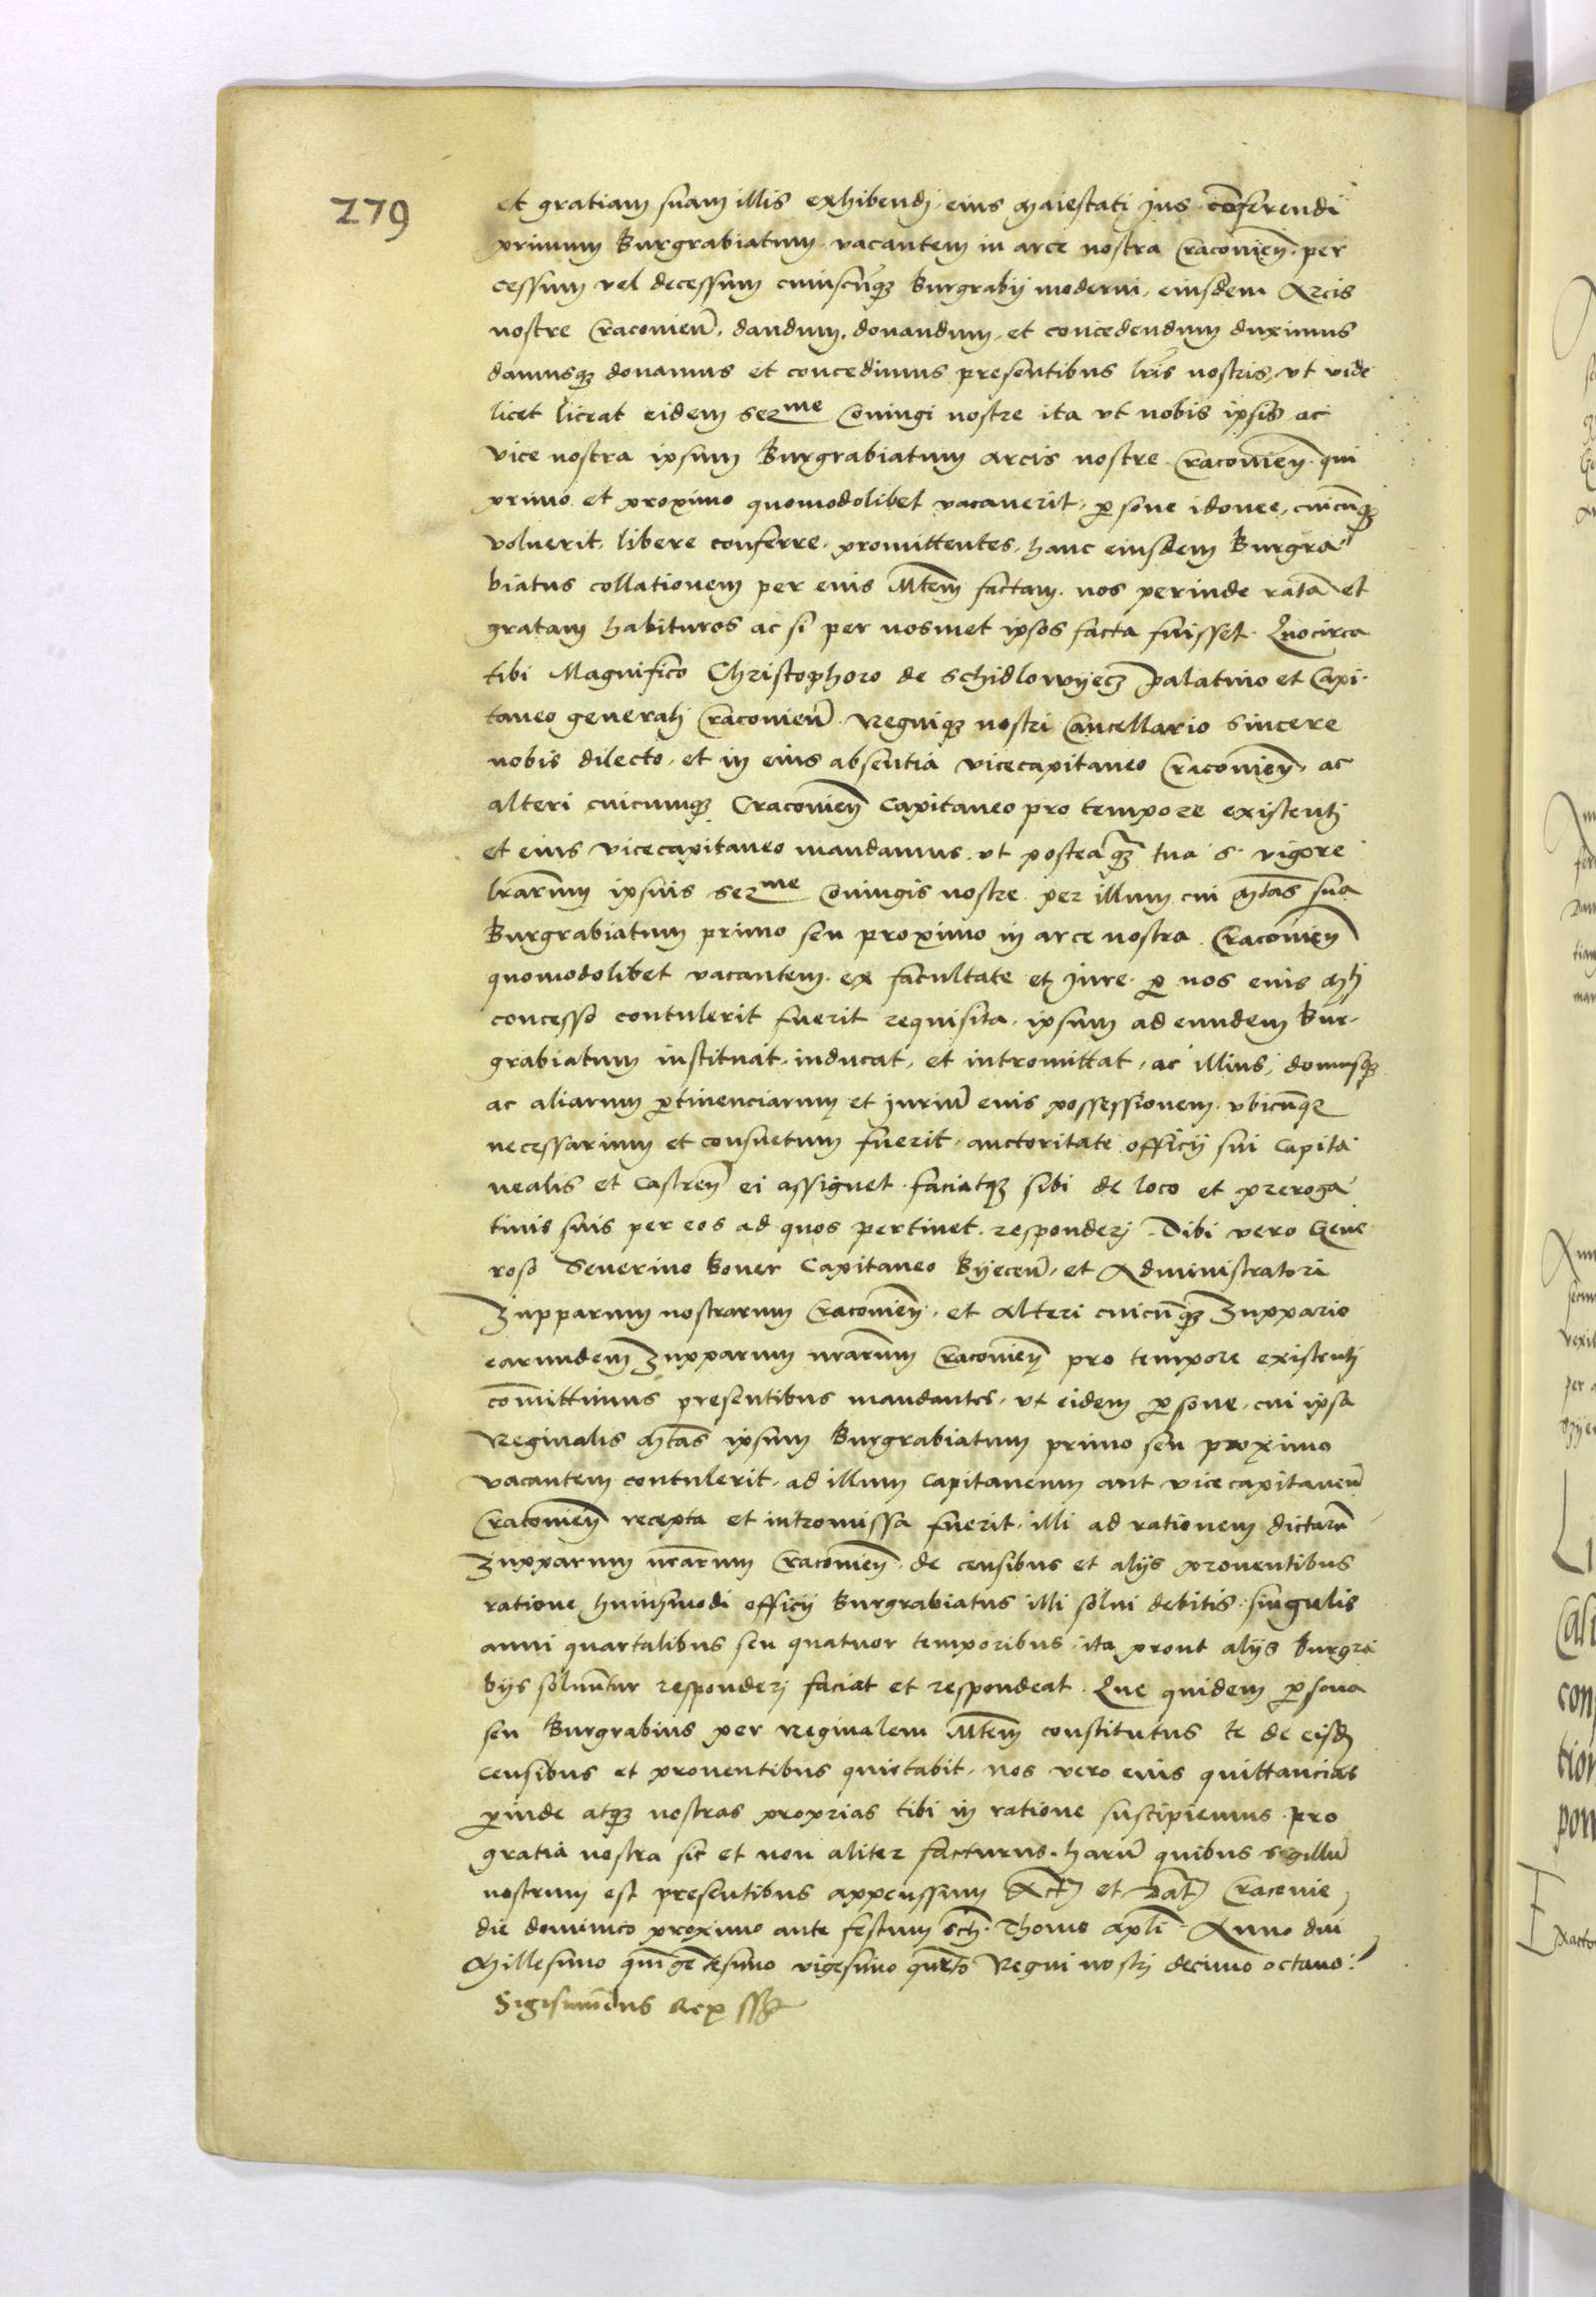 279
et gratiam suam illis exhibendj eius Maiestati Jus conferendi
primum Burgrabiatum vacantem in arce nostra Cracovien̄ per
cessum vel decessum cuiuscūqȝ Burgrabij moderni, eiusdem Arcis
nostre Cracovien̄, dandum, donandum, et concedendum duximus
damusqȝ donamus et concedimus presentibus lr̄is nostris, vt vide
licet liceat eidem Serᵐᵉ Coniugi nostre ita vt nobis ipsis ac
vice nostra ipsum Burgrabiatum arcis nostre Cracovien̄ qui
primo et proximo quomodolibet vacauerit, ꝑsone idonee, cuicūqȝ
voluerit, libere conferre, promittentes, hanc eiusdem Burgra
biatus collationem per eius Mtēm factam nos perinde ratā et
gratam habituros ac si per nosmet ipsos facta fuisset. Quocirca
tibi Magnifico Christophoro de Schidlowyecz palatino et Capi
taneo generalj Cracovien̄ Regniqȝ nostri Cancellario sincere
nobis dilecto, et in eius absentia vicecapitaneo Cracovien̄, ac
alteri cuicumqȝ Cracovien̄ Capitaneo pro tempore existentj
et eius vicecapitaneo mandamus, vt posteaqȝ tua S. vigore
lrārum ipsius Serᵐᵉ Coniugis nostre per illum cui Mtās sua
Burgrabiatum primo seu proximo in arce nostra Cracovien̄
quomodolibet vacantem ex facultate et Jure ꝑ nos eius Mtj
concesso contulerit fuerit requisita, ipsum ad eundem Bur
grabiatum instituat, inducat, et intromittat, ac illius, domusqȝ
ac aliarum ꝑtinenciarum et Juriū eius possessionem, vbicūqȝ
necessarium et consuetum fuerit, auctoritate officij sui Capita
nealis et Castren̄ ei assignet faciatqȝ sibi de loco et preroga
tiuis suis per eos ad quos pertinet responderj. Tibi vero Gene
roso Seuerino Boner Capitaneo Byecen̄, et Administratori
Zupparum nostrarum Cracovien̄, et alteri cuicūqȝ Zuppario
earundem Zupparum nrārum Cracovien̄ pro tempore existentj
com̄ittimus presentibus mandantes, vt eidem ꝑsone, cui ipsa
Reginalis Mtās ipsum Burgrabiatum primo seu proximo
vacantem contulerit, ad illum Capitaneum aut vicecapitaneū
Cracovien̄ recepta et intromissa fuerit, illi ad rationem dictarū
Zupparum nrārum Cracovien̄ de censibus et alijs prouentibus
ratione huiusmodi officij Burgrabiatus illi solui debitis singulis
anni quartalibus seu quatuor temporibus, ita prout alijs burgra
bijs soluūtur responderj faciat et respondeat. Que quidem ꝑsona
seu Burgrabius per Reginalem Mtēm constitutus te de eisd
censibus et prouentibus quictabit, nos vero eius quittancias
ꝑinde atqȝ nostras proprias tibi in ratione suscipiemus pro
gratia nostra sic et non aliter facturus. Harū quibus sigillū
nostrum est presentibus appenssum Act et Dat Cracovie
die dominico proximo ante festum scti Thome apli Anno dni
Millesimo quingētesimo vigesimo quarto Regni nostri decimo octauo
Sigismūdus Rex sst